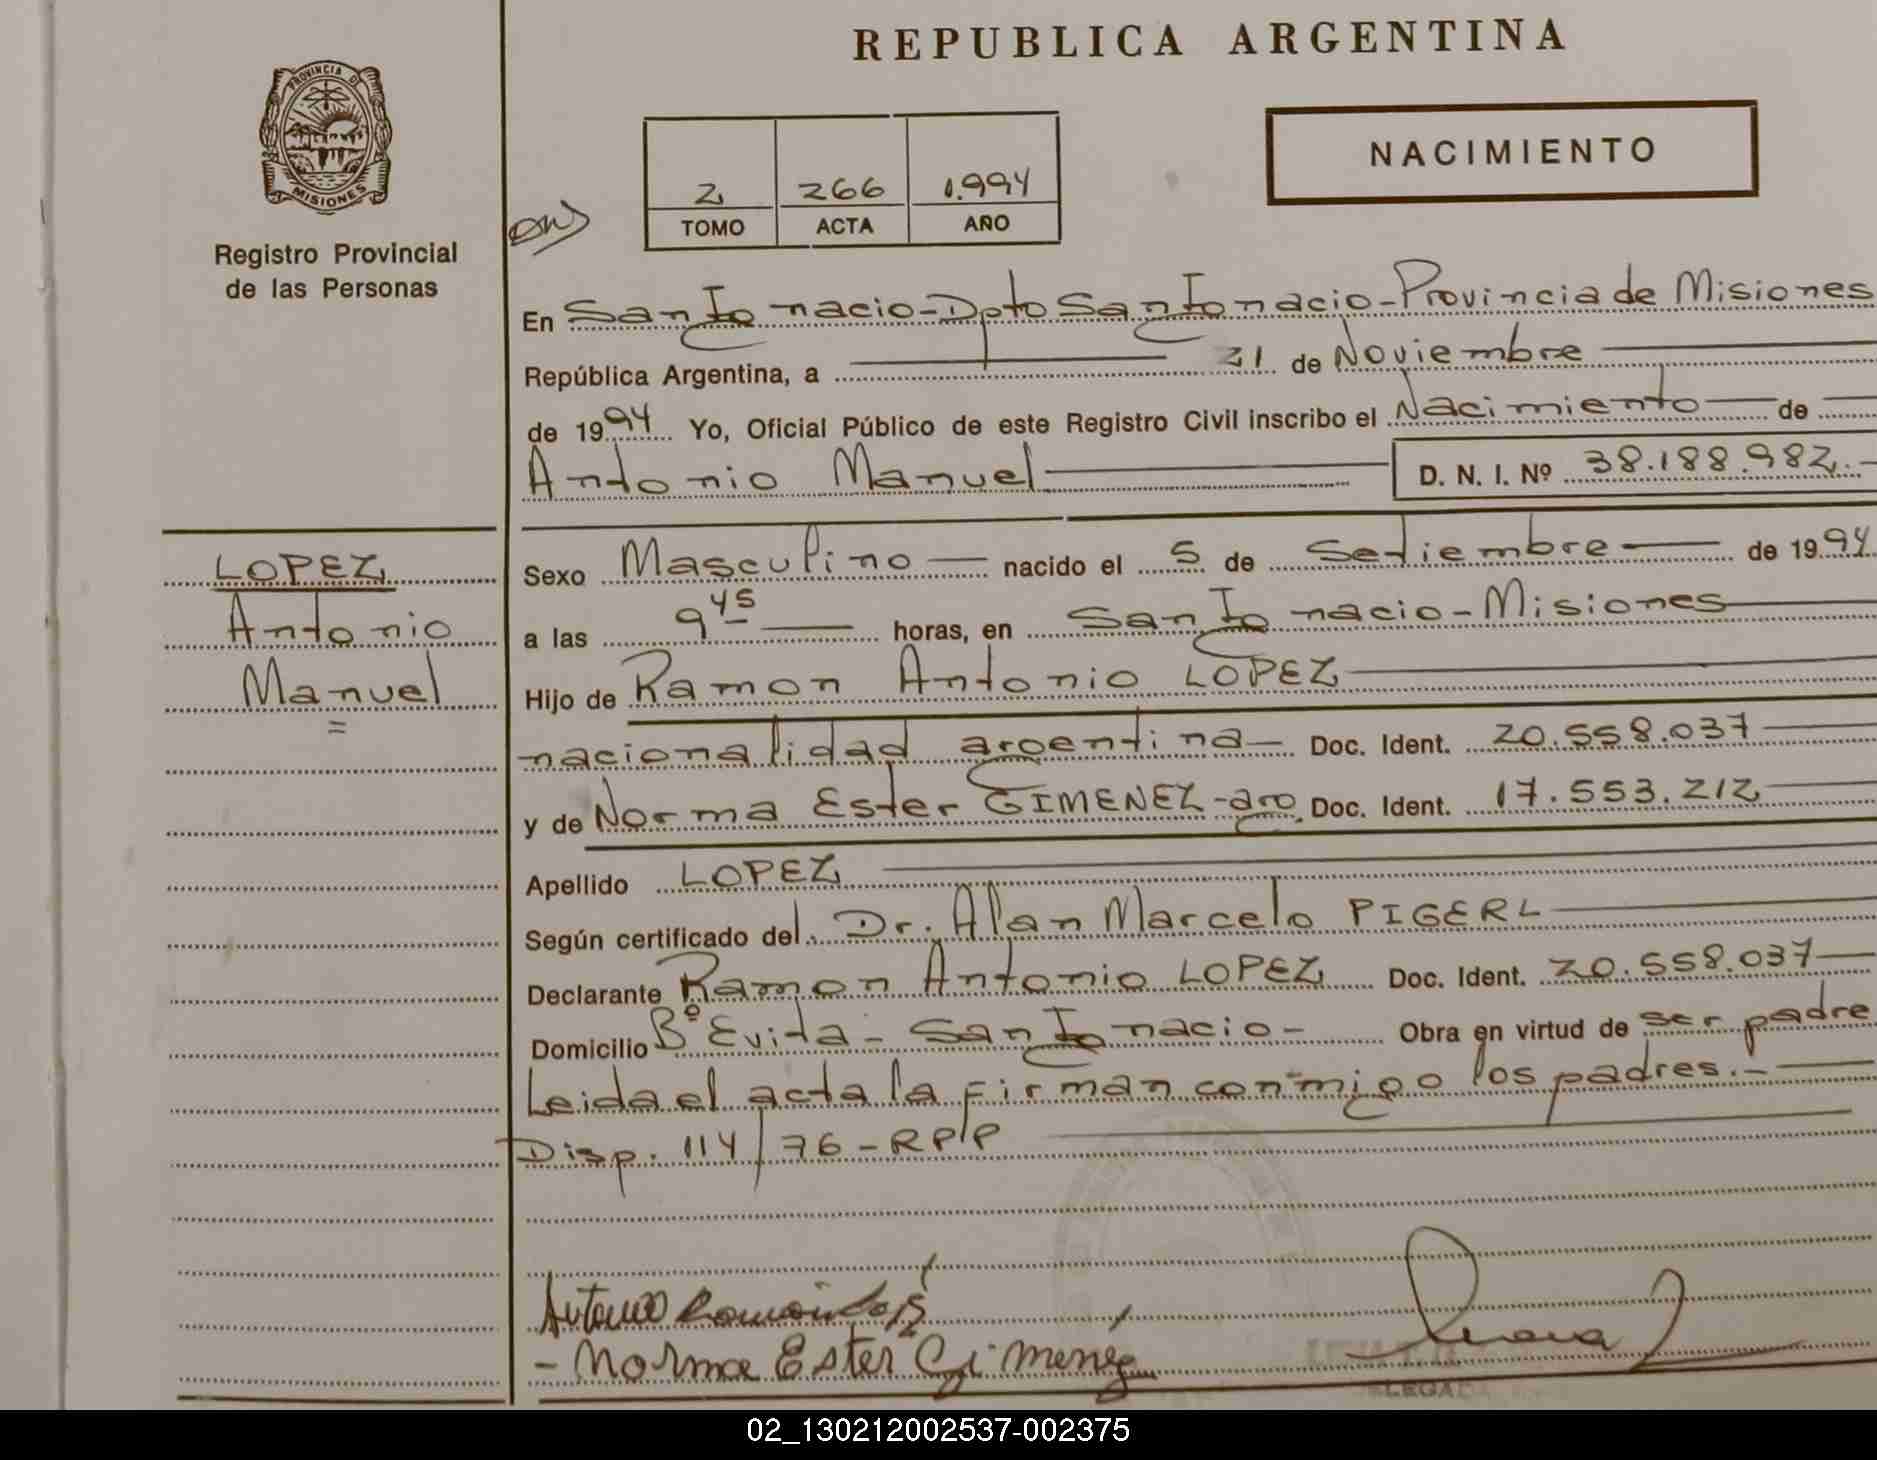 REPUBLICA ARGENTINA
PROVINCIA DE
MISIONES
Registro Provincial
de las Personas
NACIMIENTO
2 266 1.994
TOMO ACTA AÑO
En San Ignacio - Dpto San Ignacio - Provincia de Misiones
República Argentina, a 21 de Noviembre
de 1994 Yo, Oficial Público de este Registro Civil inscribo el Nacimiento de
Antonio Manuel D. N. I. Nº 38.188.982.-
LOPEZ
Antonio
Manuel
Sexo Masculino nacido el 5 de Setiembre de 1994
a las 9 45 horas, en San Ignacio - Misiones
Hijo de Ramon Antonio LOPEZ
nacionalidad argentina Doc. Ident. 20.558.037
y de Norma Ester GIMENEZ - arg. Doc. Ident. 17.553.212
Apellido LOPEZ
Según certificado del Dr. Alan Marcelo PIGERL
Declarante Ramon Antonio LOPEZ Doc. Ident. 20.558.037
Domicilio Bº Evita - San Ignacio - Obra en virtud de ser padre
Leida el acta la firman conmigo los padres.-
Disp. 114/76 - RPP
Antonio Ramón
- Norma Ester Gimenez
02_130212002537-002375